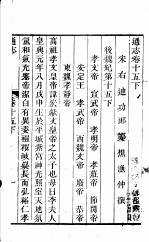 通志卷十五下
宋右迪功郎鄭樵漁仲撰
後魏紀第十五下
孝文帝 宣武帝 孝明帝 孝莊帝 節閔帝
安定王 孝武帝 西魏文帝 廢帝 恭帝
東魏孝靜帝
高祖孝文皇帝諱宏獻文皇帝之太子也母曰李夫人
皇興元年八月戊申生於平城紫宮神光照室天地氤
氳和氣充塞帝潔白有異姿襁褓岐嶷長而弘裕仁孝